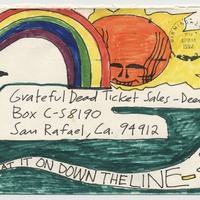 Grateful Dead Ticket Sales - Dec
Box C-S8190
San Rafael, Ca. 94912
AT IT ON DOWN THE LINE -